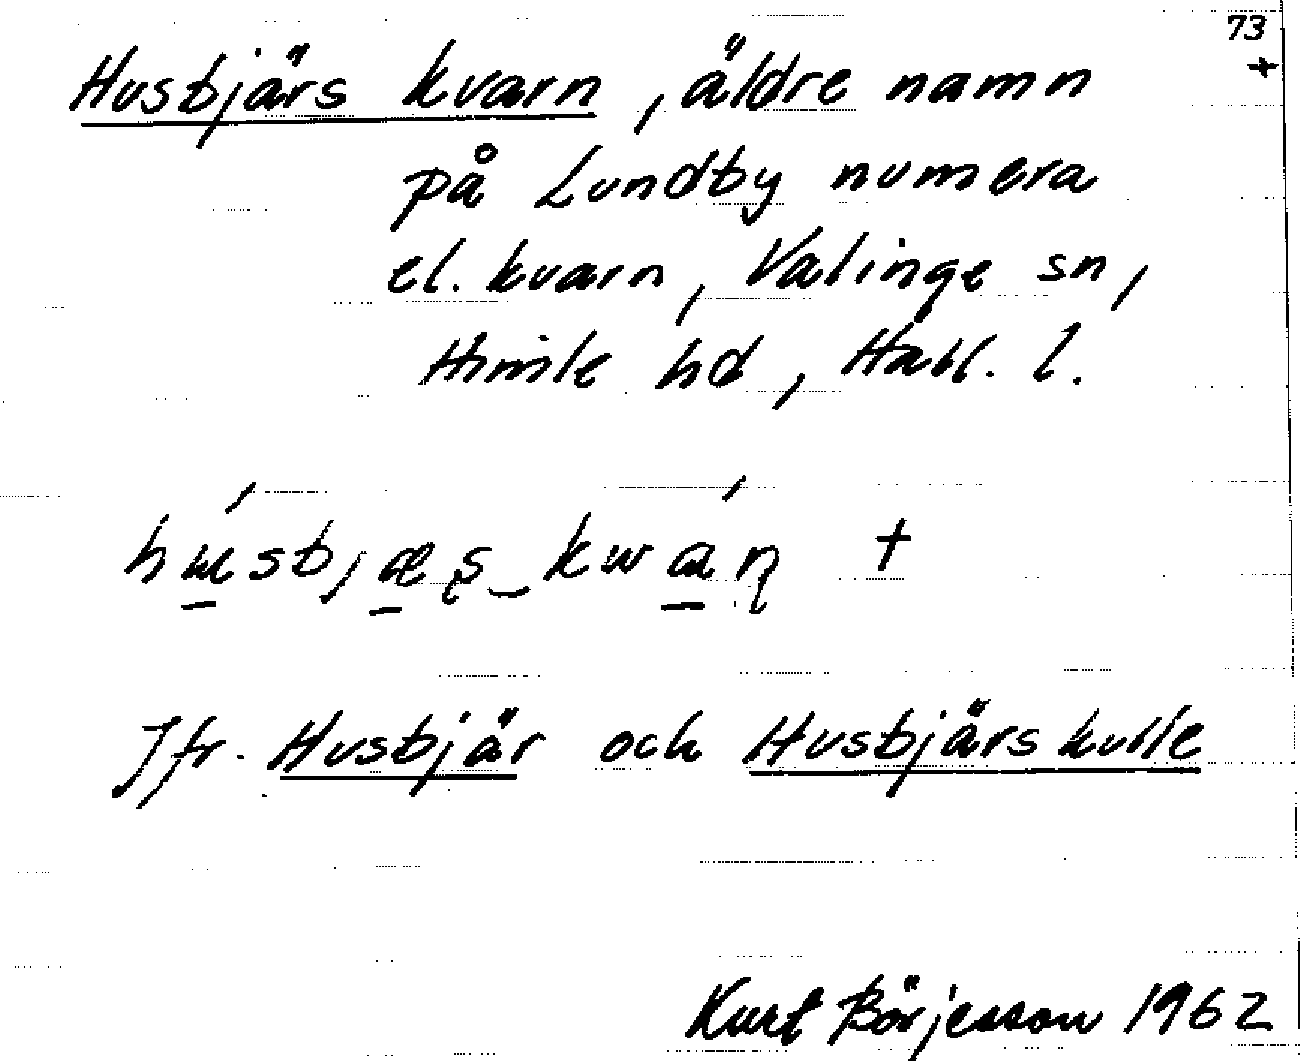 73
+
Husbjärs kvarn, äldre namn
på Lundby numera
el. kvarn, Valinge sn,
Himle hd, Hall. l.
†
Jfr. Husbjär och Husbjärs kulle
Kurt Börjesson 1962